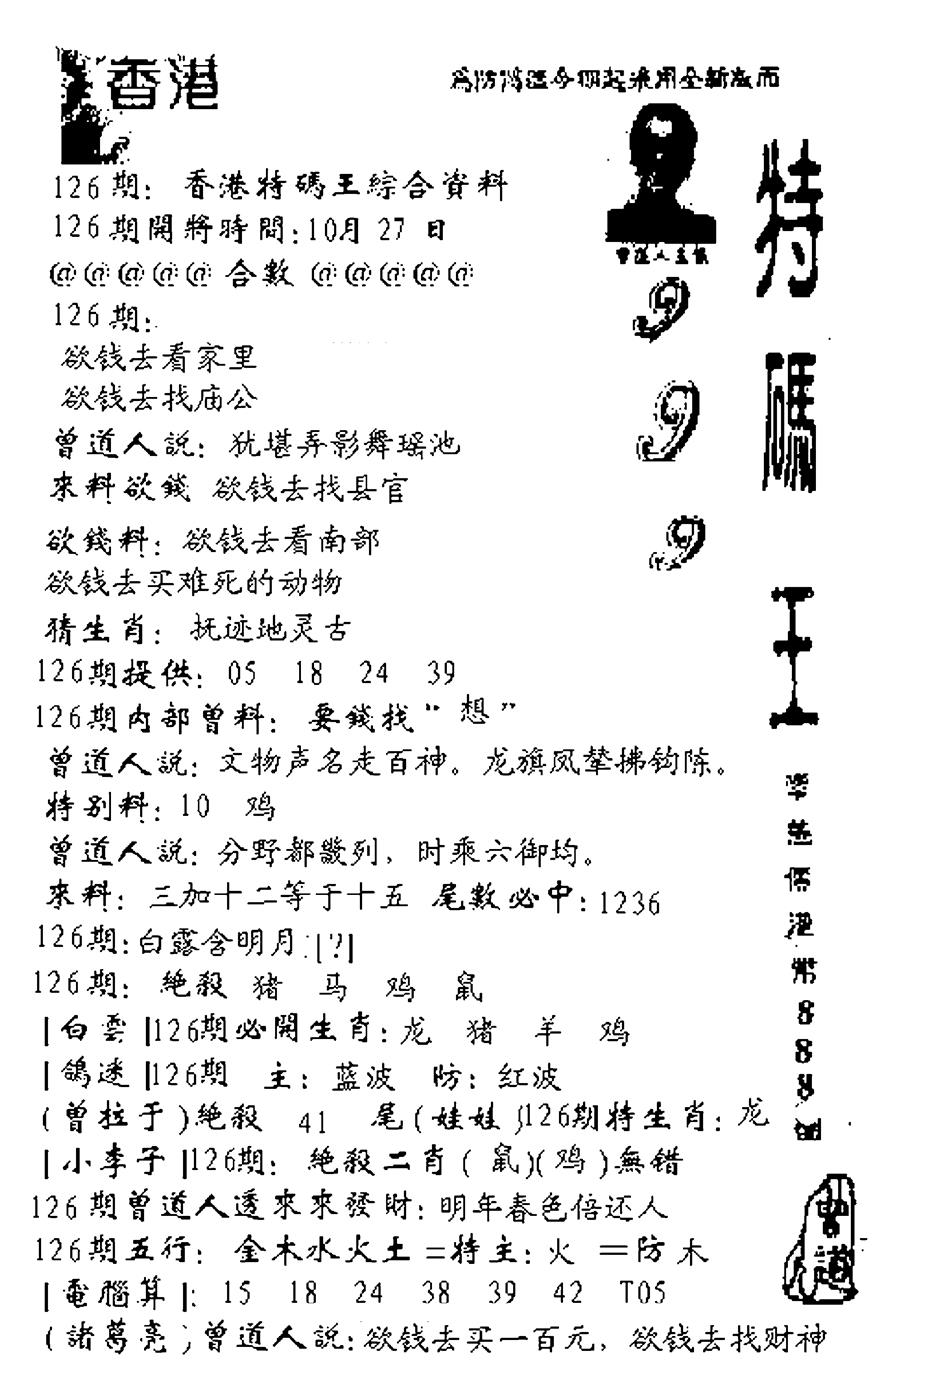 香港
為防偽造今期起采用全新版面
126期: 香港特碼王綜合資料
126期開將時間:10月 27 日
@@@@@ 合數 @@@@@
126期:
欲钱去看家里
欲钱去找庙公
曾道人説: 犹堪弄影舞瑶池
來料欲錢 欲钱去找县官
欲錢料: 欲钱去看南部
欲钱去买难死的动物
猜生肖: 抚迹地灵古
126期提供: 05 18 24 39
126期内部曾料: 要錢找“想”
曾道人説: 文物声名走百神。龙旗凤辇拂钩陈。
特别料: 10 鸡
曾道人説: 分野都畿列, 时乘六御均。
來料: 三加十二等于十五 尾數必中: 1236
126期:白露含明月:[?]
126期: 絶殺 猪 马 鸡 鼠
|白雲|126期必開生肖: 龙 猪 羊 鸡
|鴿迷|126期 主: 蓝波 防: 红波
(曾拉于)絶殺 41 尾(娃娃)126期特生肖: 龙
|小李子|126期: 絶殺二肖(鼠)(鸡)無错
126期曾道人透來來發財: 明年春色倍还人
126期五行: 金木水火土=特主: 火 =防 木
|電腦算|: 15 18 24 38 39 42 T05
(諸葛亮)曾道人説: 欲钱去买一百元, 欲钱去找财神
特碼王
9
9
9
港幣888
曾道